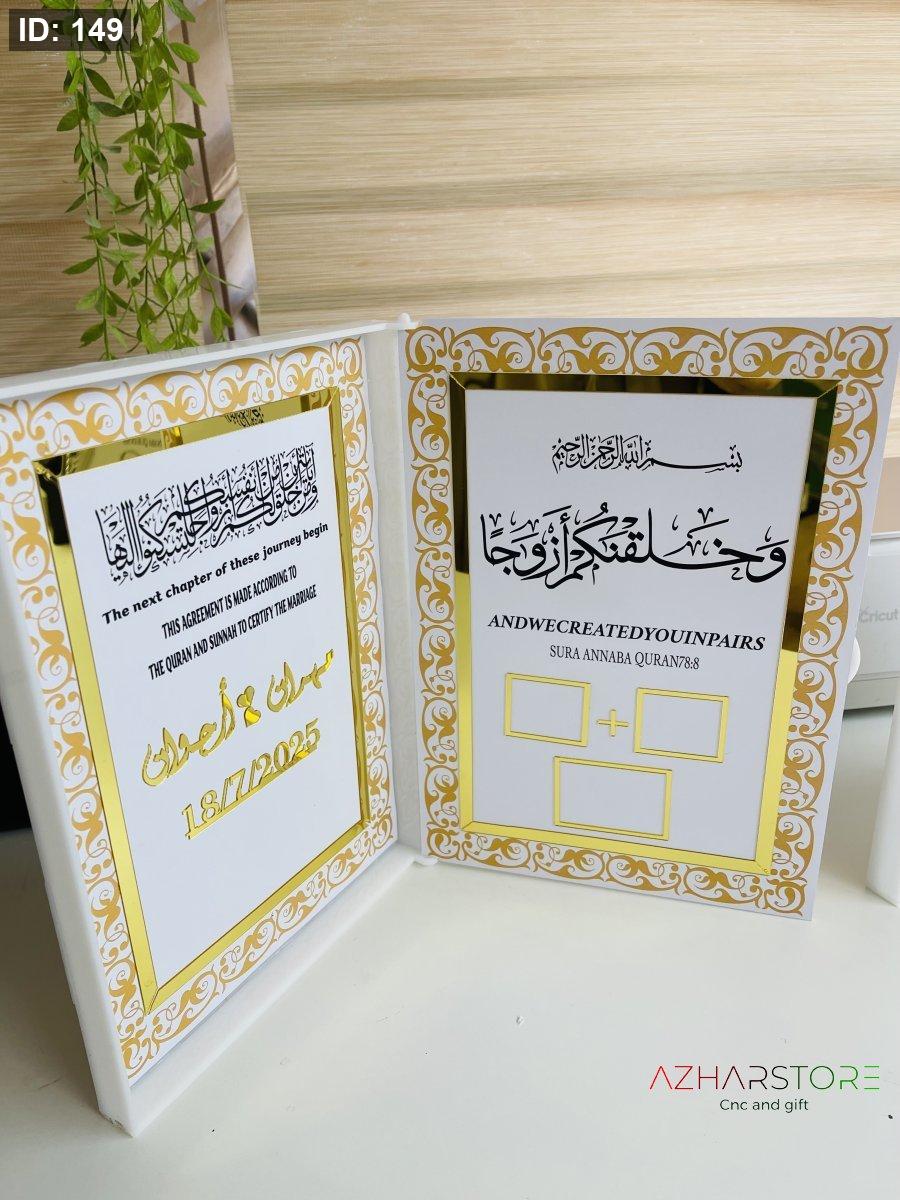 ID: 149
ومن آياته أن خلق لكم من أنفسكم أزواجا لتسكنوا إليها
The next chapter of these journey begin
THIS AGREEMENT IS MADE ACCORDING TO
THE QURAN AND SUNNAH TO CERTIFY THE MARRIAGE
مهدان & أرجوانى
18/7/2025
بسم الله الرحمن الرحيم
وَخَلَقْنَكُمْ أَزْوَجًا
ANDWECREATEDYOUINPAIRS
SURA ANNABA QURAN78:8
+
Cricut
AZHARSTORE
Cnc and gift